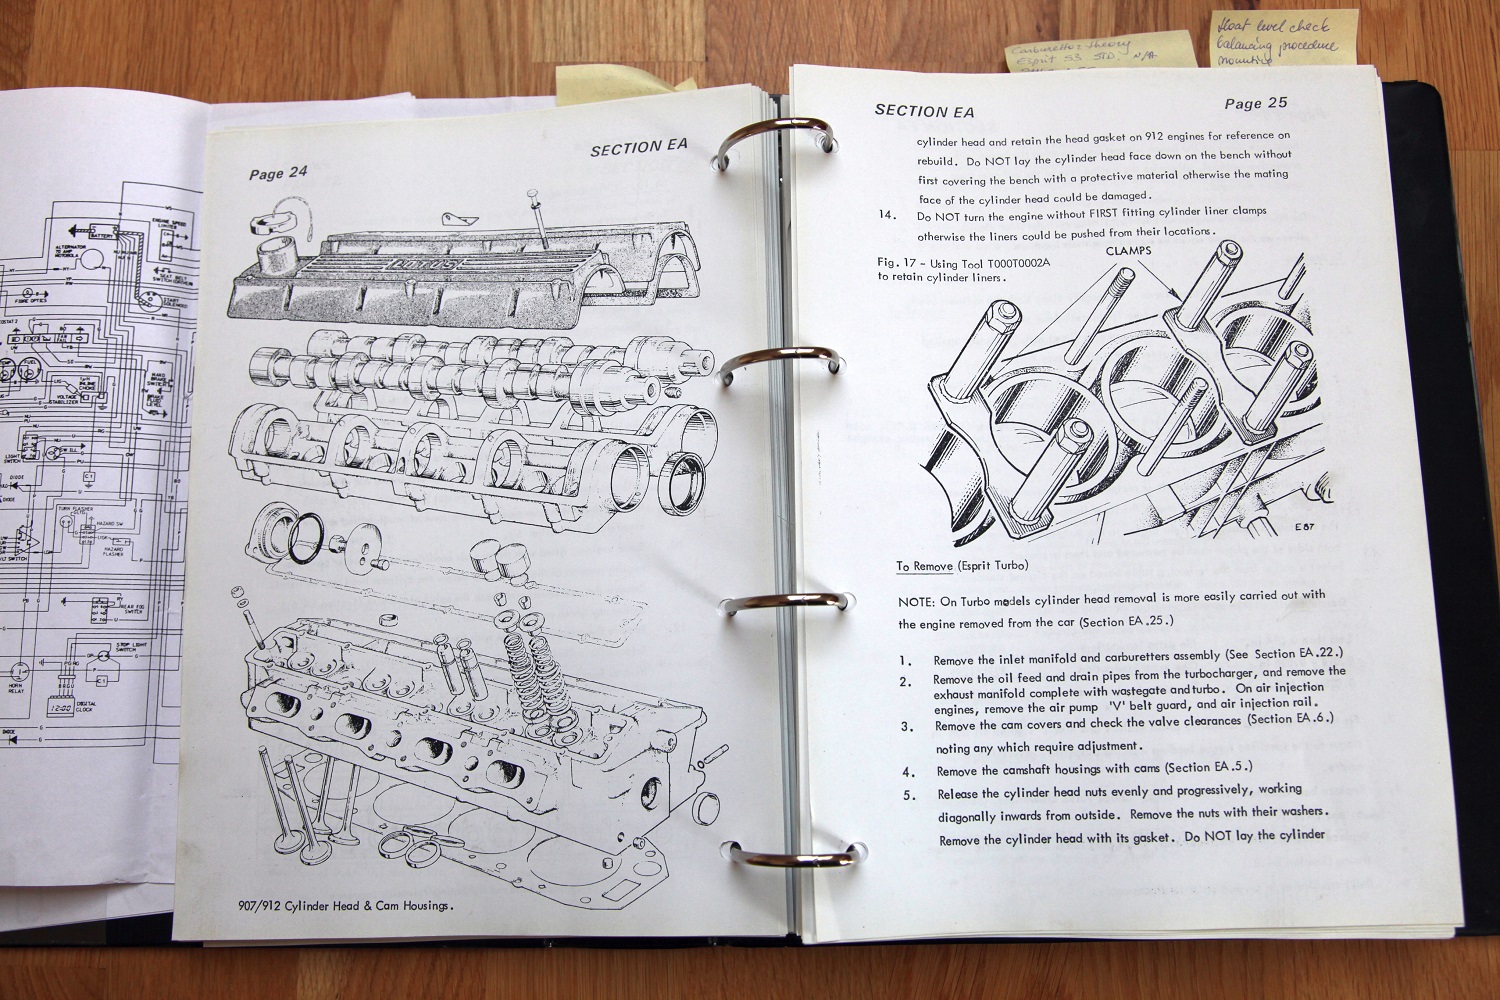 BATTERY
ENGINE SPEED
LIMITER
ALTERNATOR
70 AMP
MOTOROLA
FIBRE OPTICS
START
SOLENOID
FUEL
VOLTAGE
STABILIZER
HAND
BRAKE
SWITCH
BRAKE
LEVEL
LIGHT
SWITCH
DIODE
DIODE
TURN FLASHER
HAZARD SW
HAZARD
FLASHER
REAR FOG
SWITCH
STOP LIGHT
SWITCH
HORN
RELAY
12:00
DIGITAL
CLOCK
DIODE
Page 24
SECTION EA
LOTUS
907/912 Cylinder Head & Cam Housings.
Carburettor theory
Esprit S3 STD. N/A
Float level check
balancing procedure
mounting
SECTION EA
Page 25
cylinder head and retain the head gasket on 912 engines for reference on
rebuild. Do NOT lay the cylinder head face down on the bench without
first covering the bench with a protective material otherwise the mating
face of the cylinder head could be damaged.
14. Do NOT turn the engine without FIRST fitting cylinder liner clamps
otherwise the liners could be pushed from their locations.
CLAMPS
Fig. 17 - Using Tool T000T0002A
to retain cylinder liners.
E87
To Remove (Esprit Turbo)
NOTE: On Turbo models cylinder head removal is more easily carried out with
the engine removed from the car (Section EA.25.)
1. Remove the inlet manifold and carburetters assembly (See Section EA.22.)
2. Remove the oil feed and drain pipes from the turbocharger, and remove the
exhaust manifold complete with wastegate and turbo. On air injection
engines, remove the air pump 'V' belt guard, and air injection rail.
3. Remove the cam covers and check the valve clearances (Section EA.6.)
noting any which require adjustment.
4. Remove the camshaft housings with cams (Section EA.5.)
5. Release the cylinder head nuts evenly and progressively, working
diagonally inwards from outside. Remove the nuts with their washers.
Remove the cylinder head with its gasket. Do NOT lay the cylinder